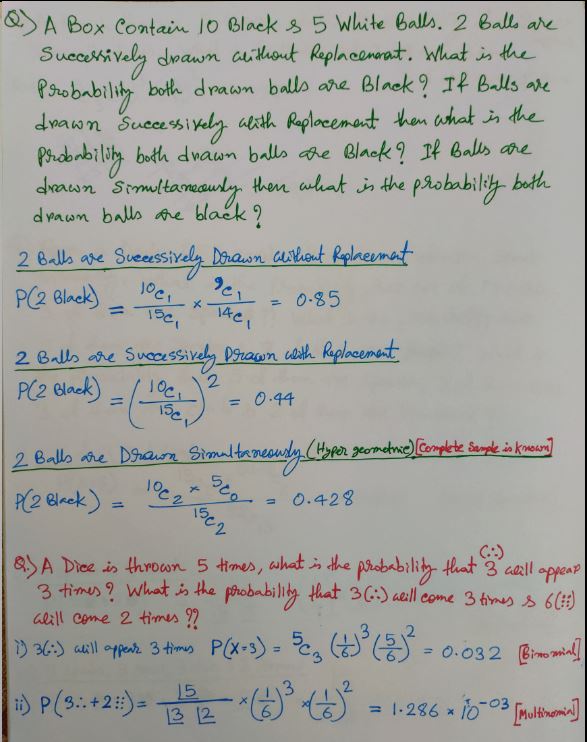 Q.) A Box Contain 10 Black & 5 White Balls. 2 Balls are
Successively drawn without Replacement. What is the
Probability both drawn balls are Black? If Balls are
drawn Successively with Replacement then what is the
Probability both drawn balls are Black? If Balls are
drawn Simultaneously then what is the probability both
drawn balls are black?
2 Balls are Successively Drawn without Replacement
P(2 Black) = ¹⁰C₁/¹⁵C₁ × ⁹C₁/¹⁴C₁ = 0.85
2 Balls are Successively Drawn with Replacement
P(2 Black) = (¹⁰C₁/¹⁵C₁)² = 0.44
2 Balls are Drawn Simultaneously (Hyper geometric) [Complete Sample is known]
P(2 Black) = ¹⁰C₂ × ⁵C₀ / ¹⁵C₂ = 0.428
Q.) A Dice is thrown 5 times, what is the probability that 3 (∴) will appear
3 times? What is the probability that 3(∴) will come 3 times & 6(⠿)
will come 2 times ??
i) 3(∴) will appear 3 times P(X=3) = ⁵C₃ (1/6)³ (5/6)² = 0.032 [Binomial]
ii) P(3∴+2⠿) = |5 / |3 |2 × (1/6)³ × (1/6)² = 1.286 × 10⁻⁰³ [Multinomial]